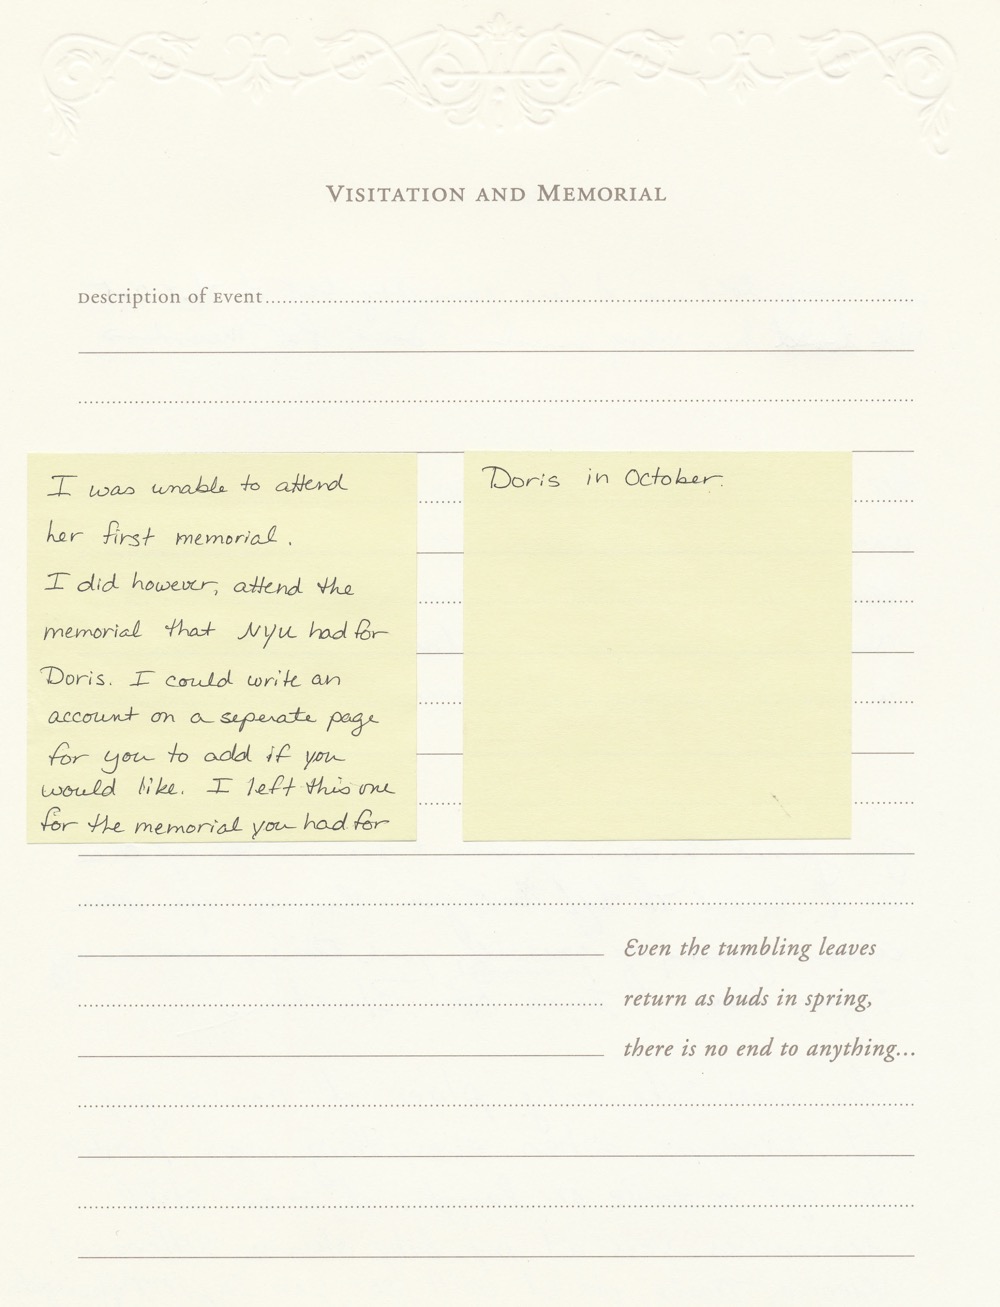 VISITATION AND MEMORIAL
Description of Event
I was unable to attend
her first memorial.
I did however, attend the
memorial that NYU had for
Doris. I could write an
account on a seperate page
for you to add if you
would like. I left this one
for the memorial you had for
Doris in October.
Even the tumbling leaves
return as buds in spring,
there is no end to anything...